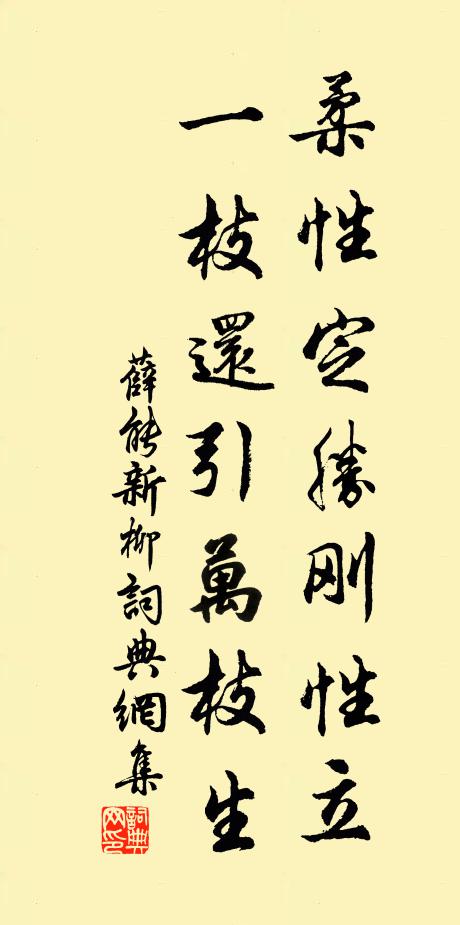 柔性定勝剛性立
一枝還引萬枝生
薛能新柳詞典網集
詞典網印